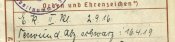 Orden und Ehrenzeichen
E.K. II. Kl. 2.9.16
Verwund. Abz. schwarz: 16.4.19